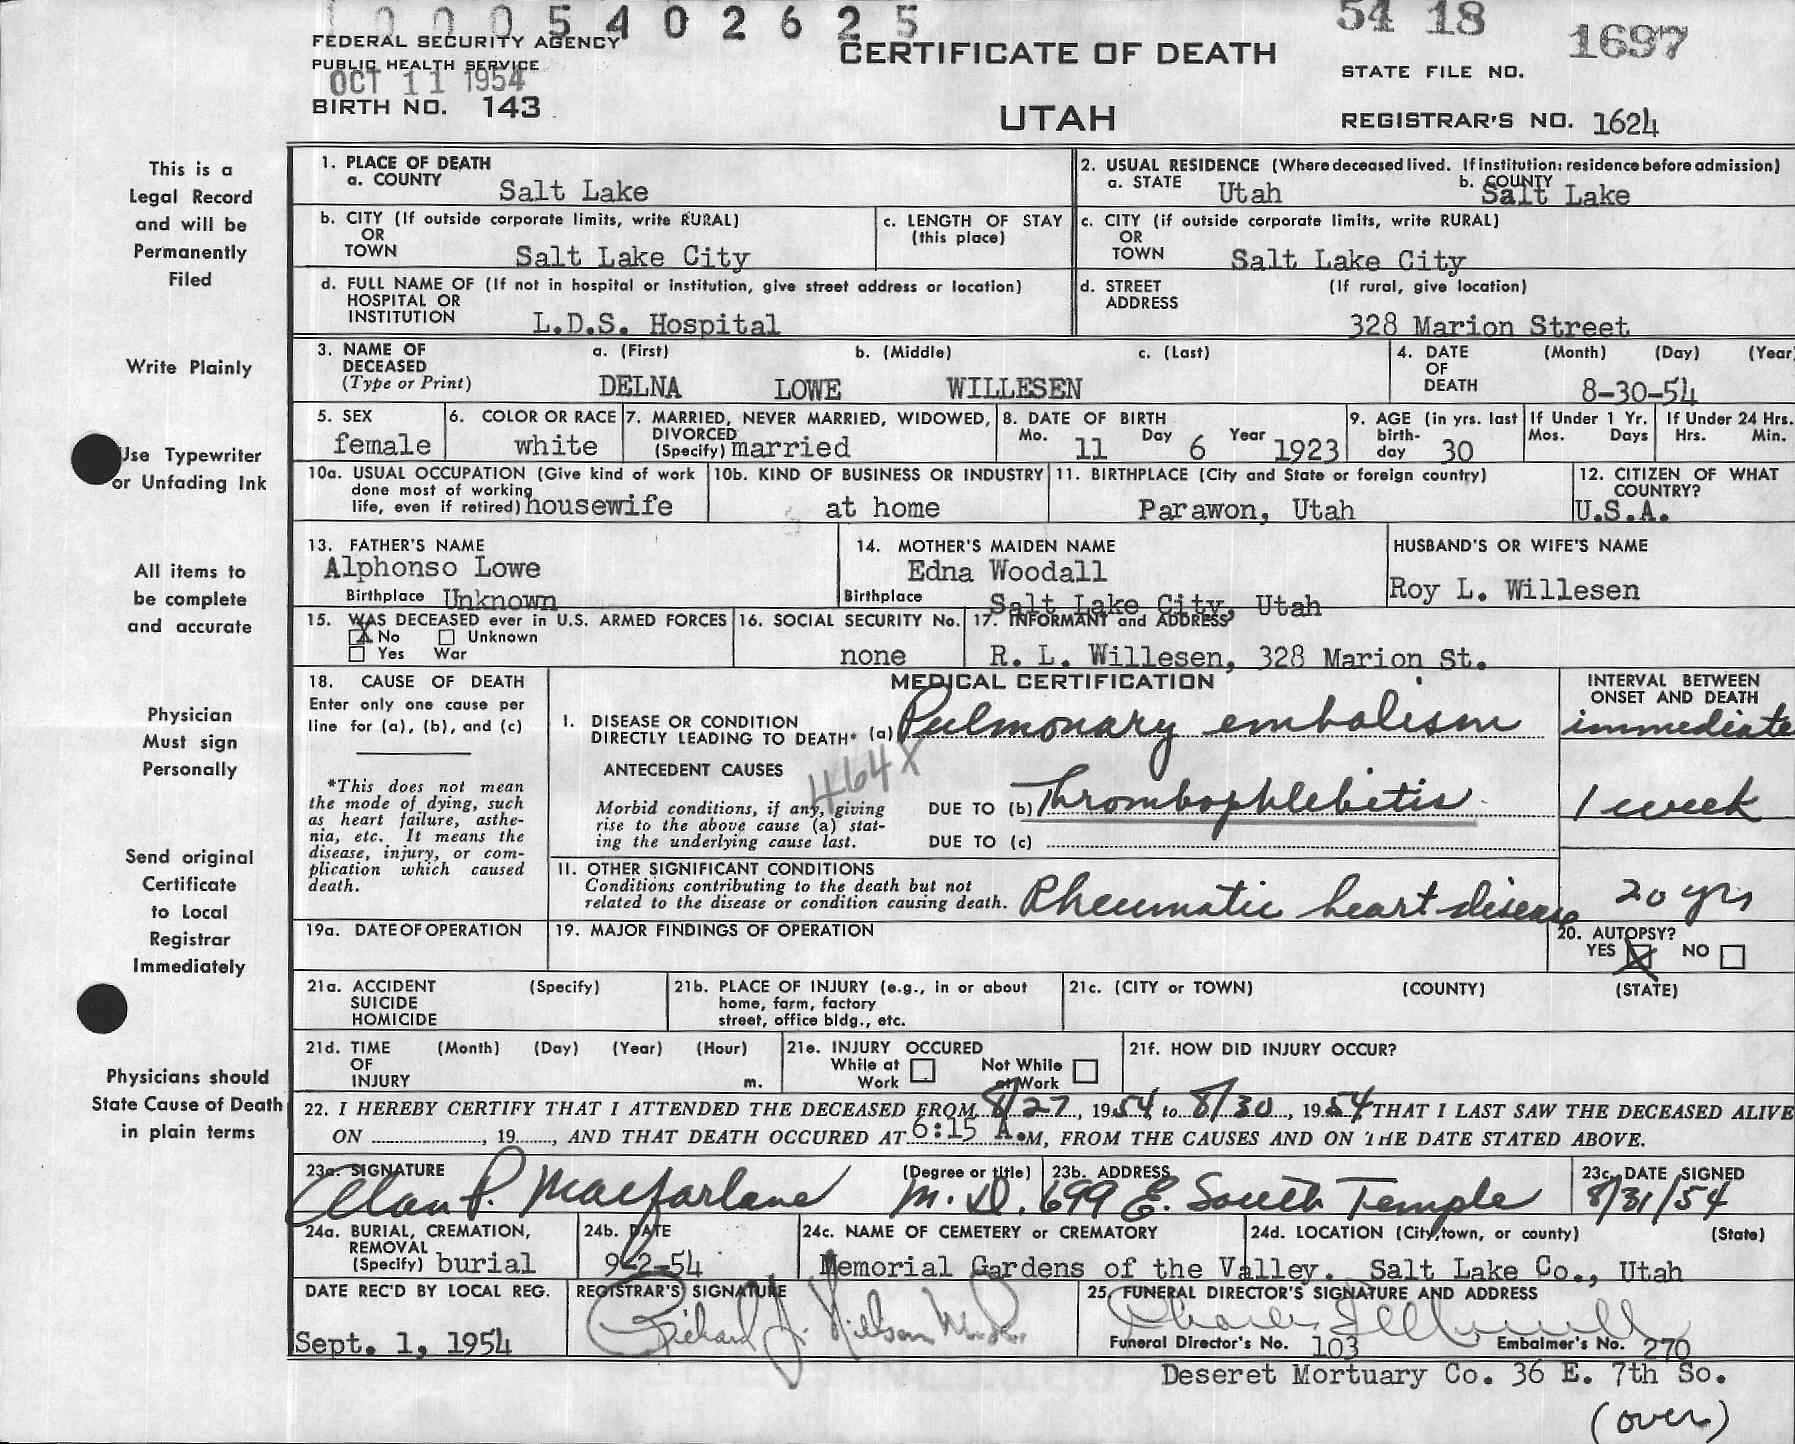 0000540262 5
54 18
1697
FEDERAL SECURITY AGENCY
PUBLIC HEALTH SERVICE
OCT 11 1954
BIRTH NO. 143
CERTIFICATE OF DEATH
UTAH
STATE FILE NO.
REGISTRAR'S NO. 1624
This is a
Legal Record
and will be
Permanently
Filed
Write Plainly
Use Typewriter
or Unfading Ink
All items to
be complete
and accurate
Physician
Must sign
Personally
Send original
Certificate
to Local
Registrar
Immediately
Physicians should
State Cause of Death
in plain terms
1. PLACE OF DEATH
a. COUNTY Salt Lake
2. USUAL RESIDENCE (Where deceased lived. If institution: residence before admission)
a. STATE Utah b. COUNTY Salt Lake
b. CITY (If outside corporate limits, write RURAL)
OR
TOWN Salt Lake City
c. LENGTH OF STAY
(this place)
c. CITY (if outside corporate limits, write RURAL)
OR
TOWN Salt Lake City
d. FULL NAME OF (If not in hospital or institution, give street address or location)
HOSPITAL OR
INSTITUTION L.D.S. Hospital
d. STREET (If rural, give location)
ADDRESS
328 Marion Street
3. NAME OF a. (First) b. (Middle) c. (Last)
DECEASED
(Type or Print) DELNA LOWE WILLESEN
4. DATE (Month) (Day) (Year
OF
DEATH 8-30-54
5. SEX
female
6. COLOR OR RACE
white
7. MARRIED, NEVER MARRIED, WIDOWED,
DIVORCED
(Specify) married
8. DATE OF BIRTH
Mo. 11 Day 6 Year 1923
9. AGE (in yrs. last
birth-
day 30
If Under 1 Yr.
Mos. Days
If Under 24 Hrs.
Hrs. Min.
10a. USUAL OCCUPATION (Give kind of work
done most of working
life, even if retired) housewife
10b. KIND OF BUSINESS OR INDUSTRY
at home
11. BIRTHPLACE (City and State or foreign country)
Parawon, Utah
12. CITIZEN OF WHAT
COUNTRY?
U.S.A.
13. FATHER'S NAME
Alphonso Lowe
Birthplace Unknown
14. MOTHER'S MAIDEN NAME
Edna Woodall
Birthplace Salt Lake City, Utah
HUSBAND'S OR WIFE'S NAME
Roy L. Willesen
15. WAS DECEASED ever in U.S. ARMED FORCES
X No Unknown
Yes War
16. SOCIAL SECURITY No.
none
17. INFORMANT and ADDRESS
R. L. Willesen, 328 Marion St.
18. CAUSE OF DEATH
Enter only one cause per
line for (a), (b), and (c)
*This does not mean
the mode of dying, such
as heart failure, asthe-
nia, etc. It means the
disease, injury, or com-
plication which caused
death.
MEDICAL CERTIFICATION
INTERVAL BETWEEN
ONSET AND DEATH
I. DISEASE OR CONDITION
DIRECTLY LEADING TO DEATH* (a) Pulmonary embolism immediate
ANTECEDENT CAUSES
464X
Morbid conditions, if any, giving
rise to the above cause (a) stat-
ing the underlying cause last.
DUE TO (b) Thrombophlebitis 1 week
DUE TO (c)
II. OTHER SIGNIFICANT CONDITIONS
Conditions contributing to the death but not
related to the disease or condition causing death. Rheumatic heart disease 20 yrs
19a. DATE OF OPERATION
19. MAJOR FINDINGS OF OPERATION
20. AUTOPSY?
YES X NO
21a. ACCIDENT (Specify)
SUICIDE
HOMICIDE
21b. PLACE OF INJURY (e.g., in or about
home, farm, factory
street, office bldg., etc.
21c. (CITY or TOWN) (COUNTY) (STATE)
21d. TIME (Month) (Day) (Year) (Hour)
OF
INJURY m.
21e. INJURY OCCURED
While at Not While
Work at Work
21f. HOW DID INJURY OCCUR?
22. I HEREBY CERTIFY THAT I ATTENDED THE DECEASED FROM 8/27, 1954 to 8/30, 1954 THAT I LAST SAW THE DECEASED ALIVE
ON , 19 , AND THAT DEATH OCCURED AT 6:15 A.M, FROM THE CAUSES AND ON THE DATE STATED ABOVE.
23a. SIGNATURE (Degree or title)
Alan P. Macfarlane M.D.
23b. ADDRESS
699 E. South Temple
23c. DATE SIGNED
8/31/54
24a. BURIAL, CREMATION,
REMOVAL
(Specify) burial
24b. DATE
9-2-54
24c. NAME OF CEMETERY or CREMATORY
24d. LOCATION (City, town, or county) (State)
Memorial Gardens of the Valley. Salt Lake Co., Utah
DATE REC'D BY LOCAL REG.
Sept. 1, 1954
REGISTRAR'S SIGNATURE
Richard J.
25. FUNERAL DIRECTOR'S SIGNATURE AND ADDRESS
Funeral Director's No. 103 Embalmer's No. 270
Deseret Mortuary Co. 36 E. 7th So.
(over)